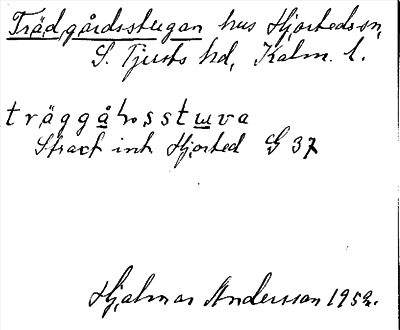 Trädgårdsstugan hus Hjorteds sn,
S. Tjusts hd, Kalm. l.
träggårsstuva
Straxt int. Hjorted G 37
Hjalmar Andersson 1952.